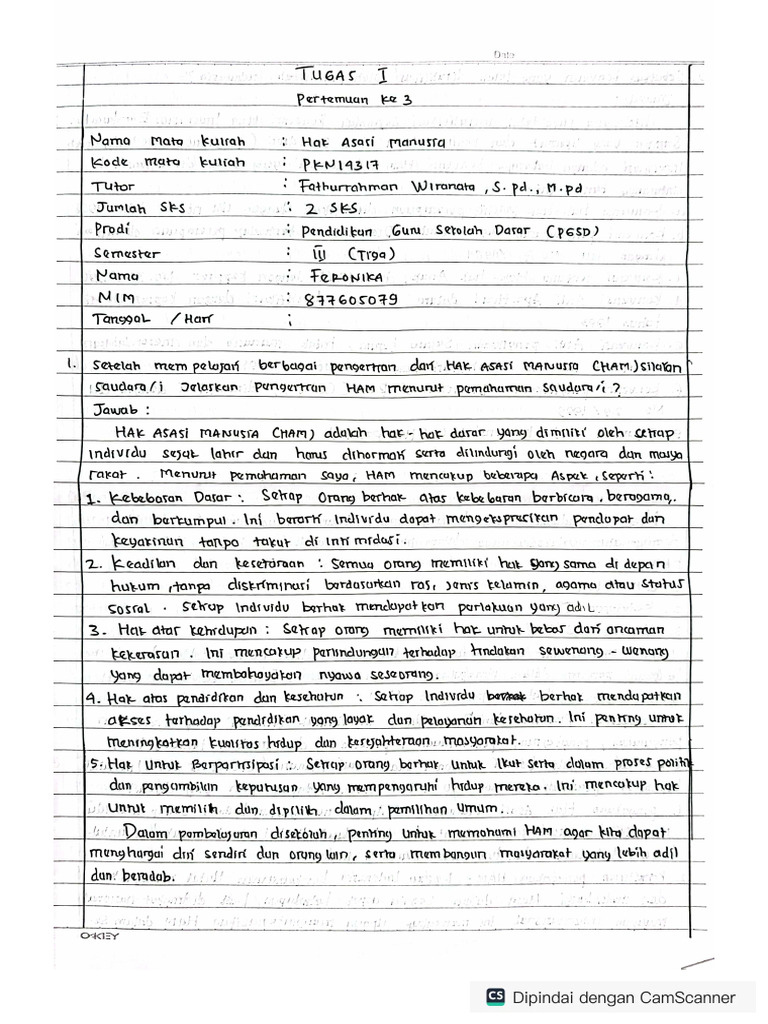 Date
TUGAS I
Pertemuan Ke 3
Nama Mata Kuliah : Hak Asasi Manusia
Kode mata kuliah : PKN14317
Tutor : Fathurrahman Wiranata, S.pd., M.pd
Jumlah SKS : 2 SKS
Prodi : Pendidikan Guru Sekolah Dasar (PGSD)
Semester : III (Tiga)
Nama : FERONIKA
NIM : 877605079
Tanggal / Hari :
1. Setelah mempelajari berbagai pengertian dari HAK ASASI MANUSIA (HAM) silakan
saudara/i Jelaskan Pengertian HAM menurut pemahaman saudara/i ?
Jawab :
HAK ASASI MANUSIA (HAM) adalah hak-hak dasar yang dimiliki oleh setiap
individu sejak lahir dan harus dihormati serta dilindungi oleh negara dan masya
rakat. Menurut Pemahaman saya, HAM mencakup beberapa Aspek, seperti :
1. Kebebasan Dasar : Setiap orang berhak atas kebebasan berbicara, beragama,
dan berkumpul. Ini berarti Individu dapat mengekspresikan pendapat dan
keyakinan tanpa takut di intimidasi.
2. Keadilan dan kesetaraan : Semua orang memiliki hak yang sama di depan
hukum, tanpa diskriminasi berdasarkan ras, jenis kelamin, agama atau status
sosial. Setiap Individu berhak mendapatkan perlakuan yang adil.
3. Hak atas kehidupan : Setiap orang memiliki hak untuk bebas dari ancaman
kekerasan. Ini mencakup perlindungan terhadap tindakan sewenang-wenang
yang dapat membahayakan nyawa seseorang.
4. Hak atas pendidikan dan kesehatan : Setiap Individu berhak mendapatkan
akses terhadap pendidikan yang layak dan pelayanan kesehatan. Ini penting untuk
meningkatkan kualitas hidup dan kesejahteraan masyarakat.
5. Hak Untuk Berpartisipasi : Setiap orang berhak untuk ikut serta dalam proses politik
dan pengambilan keputusan yang mempengaruhi hidup mereka. Ini mencakup hak
untuk memilih dan dipilih dalam pemilihan umum.
Dalam pembelajaran disekolah, penting untuk memahami HAM agar kita dapat
menghargai diri sendiri dan orang lain, serta membangun masyarakat yang lebih adil
dan beradab.
OKEY
CS Dipindai dengan CamScanner